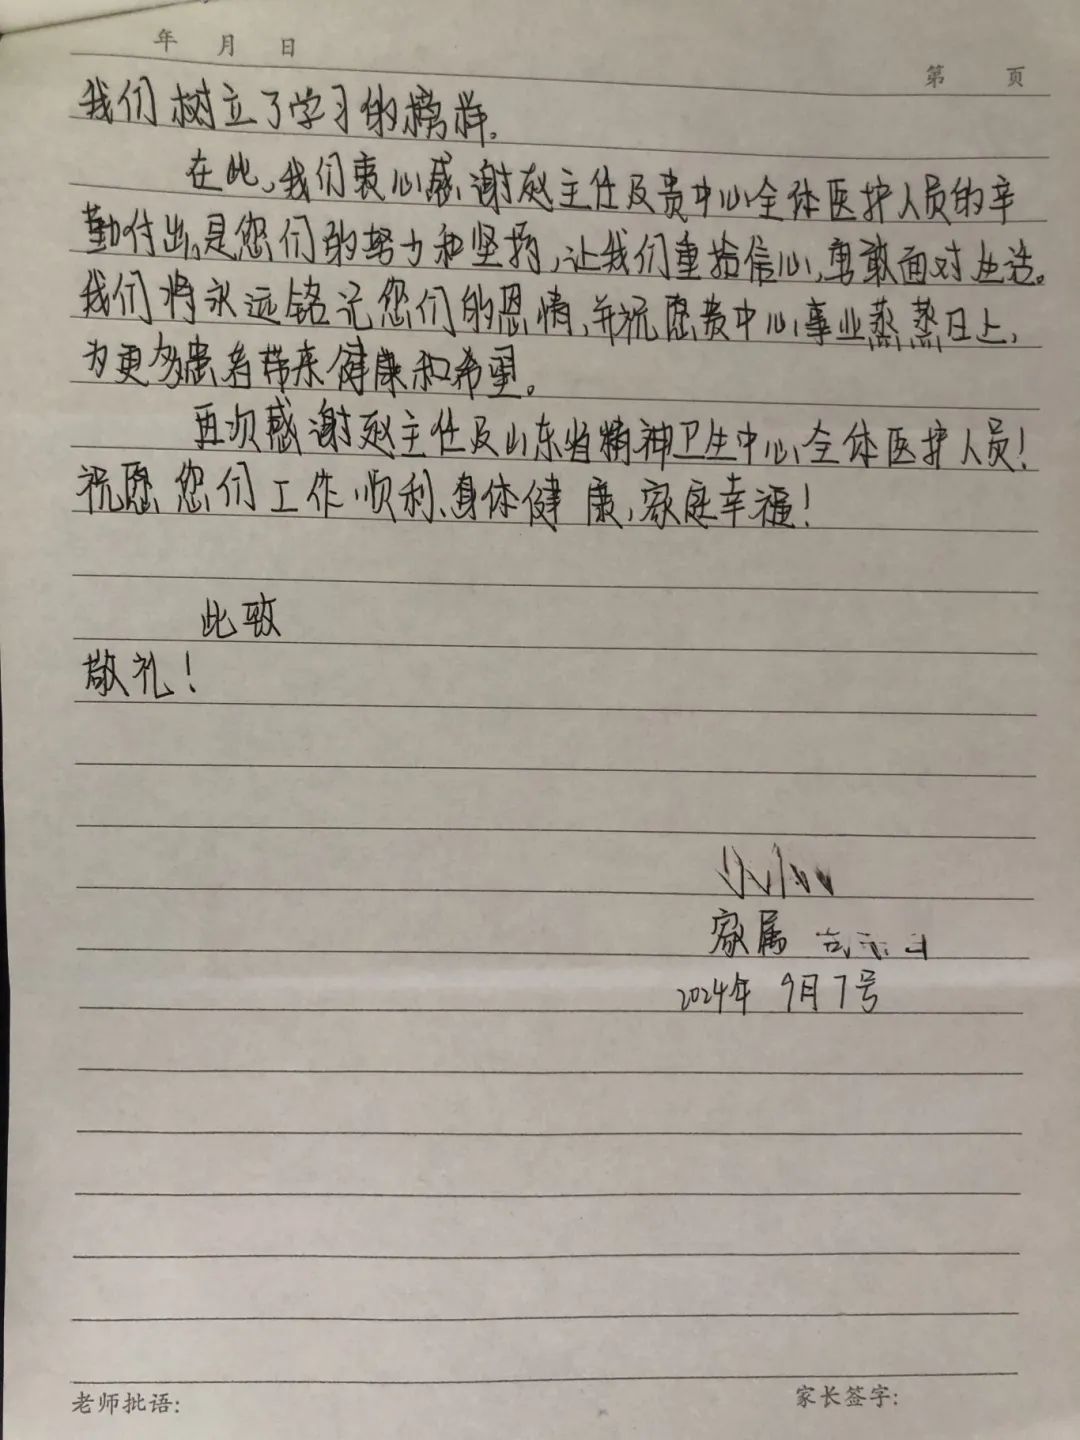 年 月 日
第 页
我们树立了学习的榜样。
在此，我们衷心感谢赵主任及贵中心全体医护人员的辛
勤付出。是您们的努力和坚持，让我们重拾信心，勇敢面对生活。
我们将永远铭记您们的恩情，并祝愿贵中心事业蒸蒸日上，
为更多患者带来健康和希望。
再次感谢赵主任及山东省精神卫生中心全体医护人员！
祝愿您们工作顺利、身体健康，家庭幸福！
此致
敬礼！
家属
2024年 9月7号
老师批语：
家长签字：